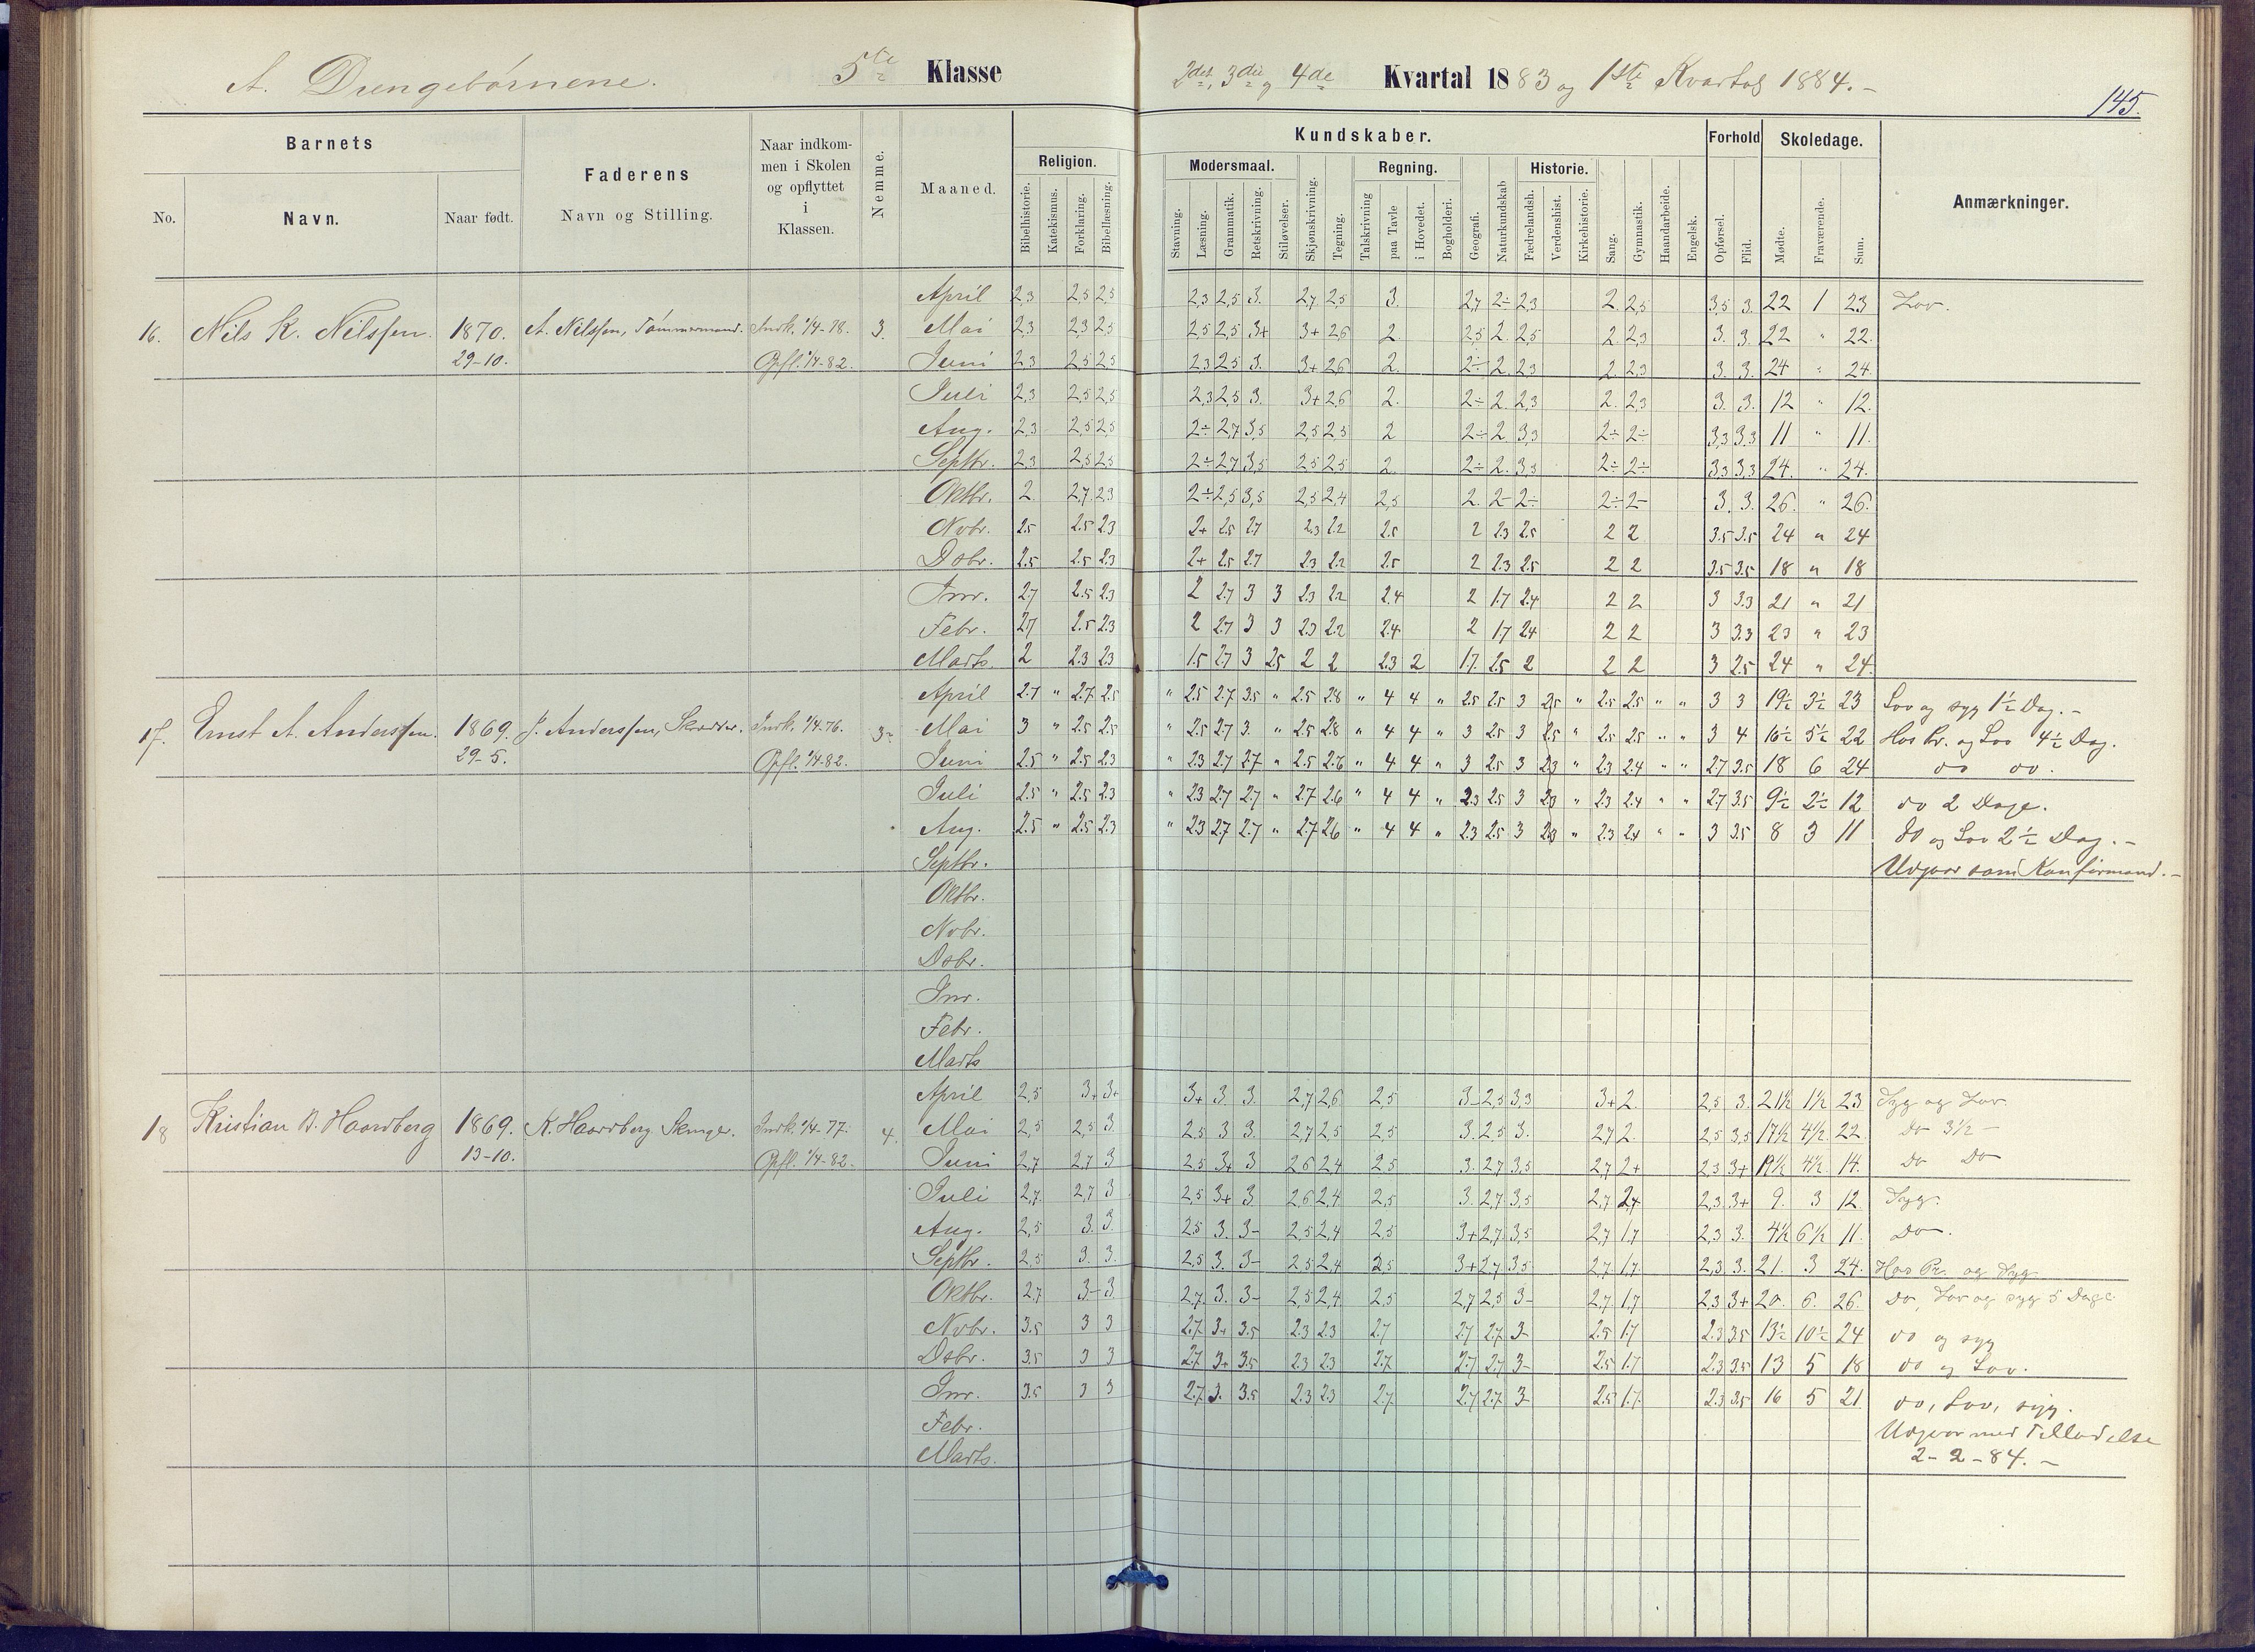 A. Drengebörnene. 5te Klasse
2det, 3die og 4de Kvartal 1883 og 1ste Kvartal 1884. –
145.
Barnets
Faderens
Naar indkommen i Skolen og opflyttet i Klassen.
Nemme.
Maaned.
Kundskaber.
Forhold
Skoledage.
Anmærkninger.
No. Navn. Naar født. Navn og Stilling.
Religion. Modersmaal. Regning. Historie.
Bibelhistorie. Katekismus. Forklaring. Bibellæsning. Stavning. Læsning. Grammatik. Retskrivning. Stiløvelser. Skjønskrivning. Tegning. Talskrivning paa Tavle i Hovedet. Bogholderi. Geografi. Naturkundskab Fædrelandsh. Verdenshist. Kirkehistorie. Sang. Gymnastik. Haandarbeide. Engelsk. Opførsel. Flid. Mødte. Fraværende. Sum.
April 2,3 2,5 2,5 2,3 2,5 3. 2,7 2,5 3. 2,7 2÷ 2,3 2. 2,5 3,5 3. 22 1 23 Lov.
16. Nils K. Nilssen. 1870. A. Nilssen, Tömmermand. Indk. 1/4-78. 3. Mai 2,3 2,3 2,5 2,5 2,5 3+ 3+ 2,6 2 2,5 2. 2,5 2. 2,3 3. 3. 22 " 22.
29-10. Opfl. 1/4-82. Juni 2,3 2,5 2,5 2,3 2,5 3. 3+ 2,6 2. 2÷ 2. 2,3 2. 2,3 3. 3. 24 " 24.
Juli 2,3 2,5 2,5 2,3 2,5 3. 3+ 2,6 2. 2÷ 2. 2,3 2. 2,3 3. 3. 12 " 12.
Aug. 2,3 2,5 2,5 2÷ 2,7 3,5 2,5 2,5 2 2÷ 2 3,3 2÷ 2÷ 3,3 3,3 11 " 11.
Septbr. 2,3 2,5 2,5 2÷ 2,7 3,5 2,5 2,5 2. 2÷ 2. 3,3 2÷ 2÷ 3,3 3,3 24. " 24.
Oktbr. 2. 2,7 2,3 2÷ 2,5 3,5 2,5 2,4 2,5 2. 2- 2÷ 2÷ 2- 3. 3. 26. " 26.
Novbr. 2.5 2.5 2.3 2+ 2.5 2.7 2.3 2.2 2.5 2 2.3 2.5 2 2 3.5 3.5 24 " 24
Dsbr. 2.5 2.5 2.3 2+ 2.5 2.7 2.3 2.2 2.5 2 2.3 2.5 2 2 3.5 3.5 18 " 18
Jnr. 2.7 2.5 2.3 2 2.7 3 3 2.3 2.2 2.4 2 1.7 2.4 2 2 3 3.3 21 " 21
Febr. 2.7 2.5 2.3 2 2.7 3 3 2.3 2.2 2.4 2 1.7 2.4 2 2 3 3.3 23 " 23
Marts. 2 2.3 2.3 1.5 2.7 3 2.5 2 2 2.3 2 1.7 2.5 2 2 2 3 2.5 24 " 24
April 2.7 " 2.7 2.5 " 2.5 2.7 3.5 " 2.5 2.8 " 4 4 " 2.5 2.5 3 2.5 " 2.5 2.5 " " 3 3 19½ 3½ 23 Lov og syg 1½ Dag. –
17. Ernst A. Anderssen. 1869. J. Anderssen, Skrædder. Indk. 1/4-76. 3- Mai 3 " 2.5 2.5 " 2.5 2.7 3. " 2.5 2.8 " 4 4 " 3 2.5 3 2.5 " 2.5 2.5 " " 3 4 16½ 5½ 22 Hos Pr. og Lov 4½ Dag.
29-5. Opfl. 1/4-82. Juni 2.5 " 2.5 2.3 " 2.3 2.7 2.7 " 2.5 2.6 " 4 4 " 3 2.5 3 2.3 " 2.3 2.4 " " 2.7 3.5 18 6 24 do do.
Juli 2.5 " 2.5 2.3 " 2.3 2.7 2.7 " 2.7 2.6 " 4 4 " 2.3 2.5 3 2.3 " 2.3 2.4 " " 2.7 3.5 9½ 2½ 12 do 2 Dage.
Aug. 2.5 " 2.5 2.3 " 2.3 2.7 2.7 " 2.7 2.6 " 4 4 " 2.3 2.5 3 2.3 " 2.3 2.4 " " 3 3.5 8 3 11 do og Lov 2½ Dag. –
Septbr. Udgaar som Konfirmand. –
Oktbr.
Nobr.
Dsbr.
Jnr.
Febr.
Marts
April 2,5 3+ 3+ 3+ 3. 3. 2,7 2,6 2,5 3- 2,5 3,3 3+ 2. 2,5 3. 21½ 1½ 23 Syg og Lov
18 Kristian B. Haavberg 1869. K. Haavberg. Indk. 1/4-77. 4. Mai 2,5 2,5 3 2,5 3 3. 2,7 2,5 2,5 3. 2,5 3. 2,7 2. 2,5 3,5 17½ 4½ 22. Do 3½ –
13-10. Opfl. 1/4-82. Juni 2,7 2,7 3 2,5 3+ 3 2,6 2,4 2,5 3. 2,7 3,5 2,7 2+ 2,3 3+ 19½ 4½ 14. Do Do
Juli 2,7. 2,7 3 2,5 3+ 3. 2,6 2,4 2,5 3. 2,7 3,5 2,7 2,4 2,3 3+ 9. 3 12. Syg.
Aug. 2,5 3. 3. 2,5 3. 3- 2,5 2,4 2,5 3+ 2,7 3,5 2,7 1,7 2,3 3. 4½ 6½ 11. Do.
Septbr. 2,5 3. 3. 2,5 3. 3- 2,5 2,4 2,5 3+ 2,7 3,5 2,7 1,7 2,3 3. 21. 3 24. Hos Pr. og Syg
Oktbr. 2,7 3- 3 2,7. 3. 3- 2,5 2,4 2,5 2,7 2,5 3- 2,7 1,7 2,3 3+ 20. 6. 26. Do, Lov og syg 5 Dage.
Nobr. 3.5 3 3 2.7 3+ 3.5 2.3 2.3 2.7 2.7 2.7 3- 2.5 1.7 2.3 3.5 13½ 10½ 24 do og syg
Dsbr. 3.5 3 3 2.7 3+ 3.5 2.3 2.3 2.7 2.7 2.7 3- 2.5 1.7 2.3 3.5 13 5 18 do og Lov.
Jnr. 3.5 3 3 2.7 3. 3.5 2.3 2.3 2.7 2.7 2.7 3- 2.5 1.7 2.3 3.5 16 5 21 do, Lov, syg.
Febr. Udgaar med Tilladelse
Marts. 2-2-84. –